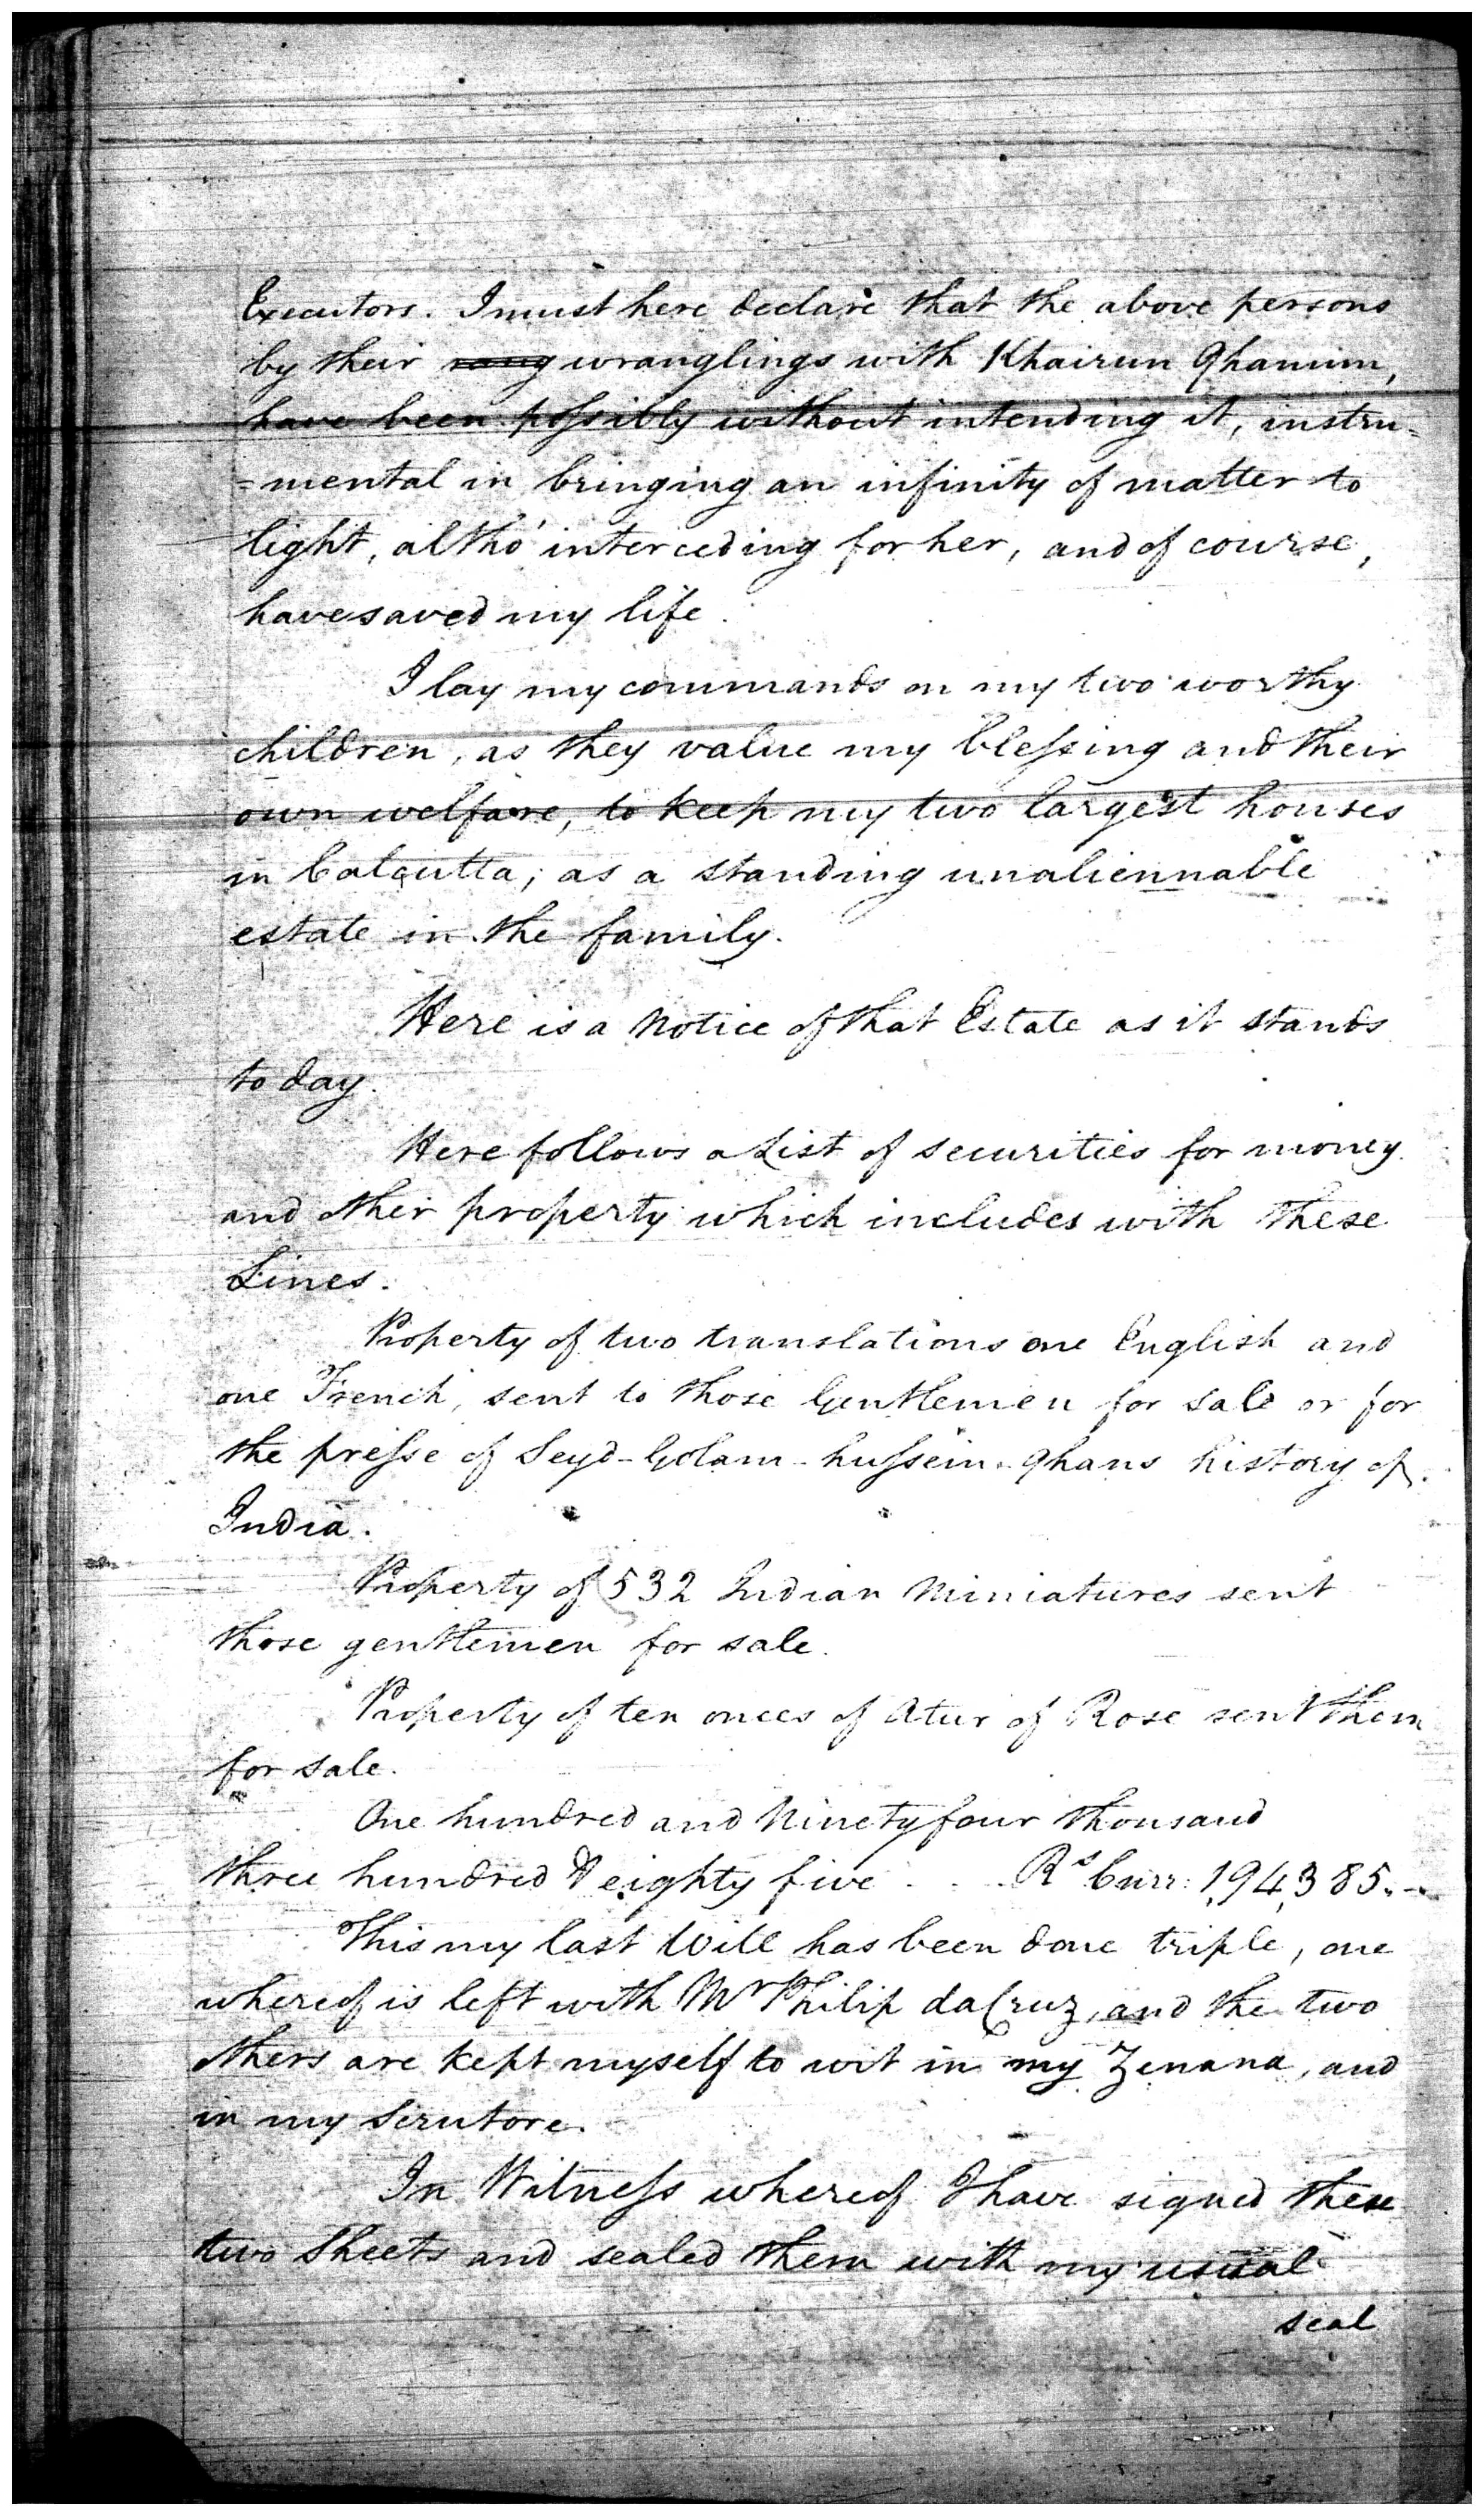 Executors. I must here declare that the above persons
by their rang wranglings with Khairun Qhanum,
have been possibly without intending it, instru=
=mental in bringing an infinity of matter to
light, altho' interceding for her, and of course,
have saved my life.
I lay my commands on my two worthy
children, as they value my blessing and their
own welfare, to keep my two largest houses
in Calcutta; as a standing unaliennable
estate in the family.
Here is a Notice of that Estate as it stands
to day.
Here follows a List of securities for money
and other property which includes with these
Lines.
Property of two translations one English and
one French, sent to those Gentlemen for sale or for
the presse of Seyd-Golam-hussein-qhans history of
India.
Property of 532 Indian Miniatures sent
those gentlemen for sale.
Property of ten onces of Atur of Rose sent them
for sale.
One hundred and Ninety four thousand
three hundred & eighty five . . . Rs Curr: 194,385.-
This my last Will has been done triple, one
whereof is left with Mr Philip daCruz, and the two
others are kept myself to wit in my Zenana, and
in my Scrutore.
In Witness whereof I have signed these
two Sheets and sealed them with my usual
seal